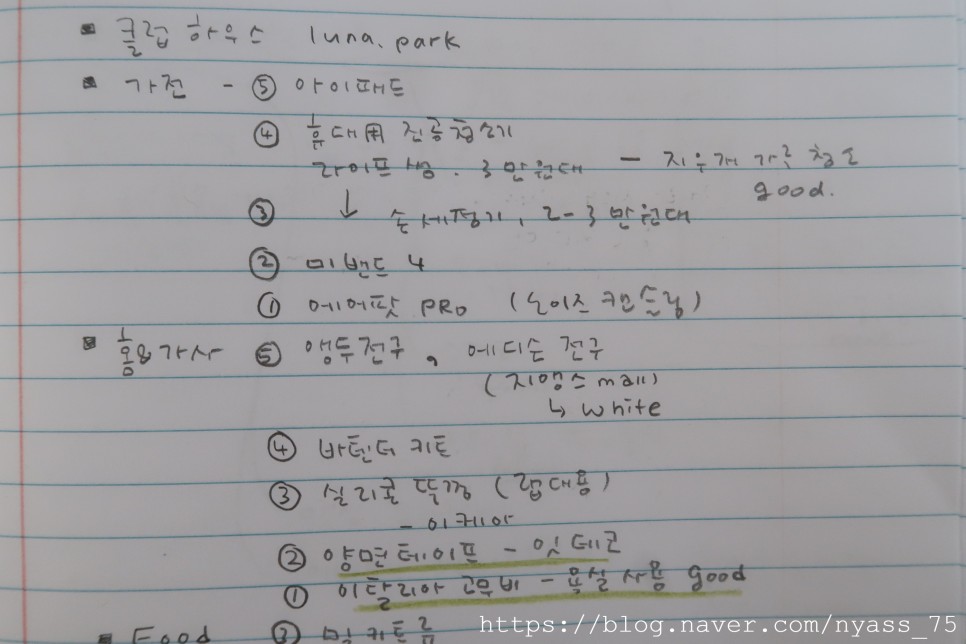 ▪ 클럽 하우스 luna.park
▪ 가전 - ⑤ 아이패드
④ 휴대用 진공청소기
라이프썸. 3만원대 - 지우개 가루 청소
good.
③ ↓ 손세정기, 2-3만원대
② 미밴드 4
① 에어팟 PRO (노이즈 캔슬링)
▪ 홈&가사 ⑤ 앵두전구, 에디슨 전구
(지앵스mall)
↳ white
④ 바텐더 키트
③ 실리콘 뚜껑 (랩대용)
- 이케아
② 양면테이프 - 잇템
① 이탈리아 고무비 - 욕실 사용 good
▪ Food ③ 밀키트
https://blog.naver.com/nyass_75